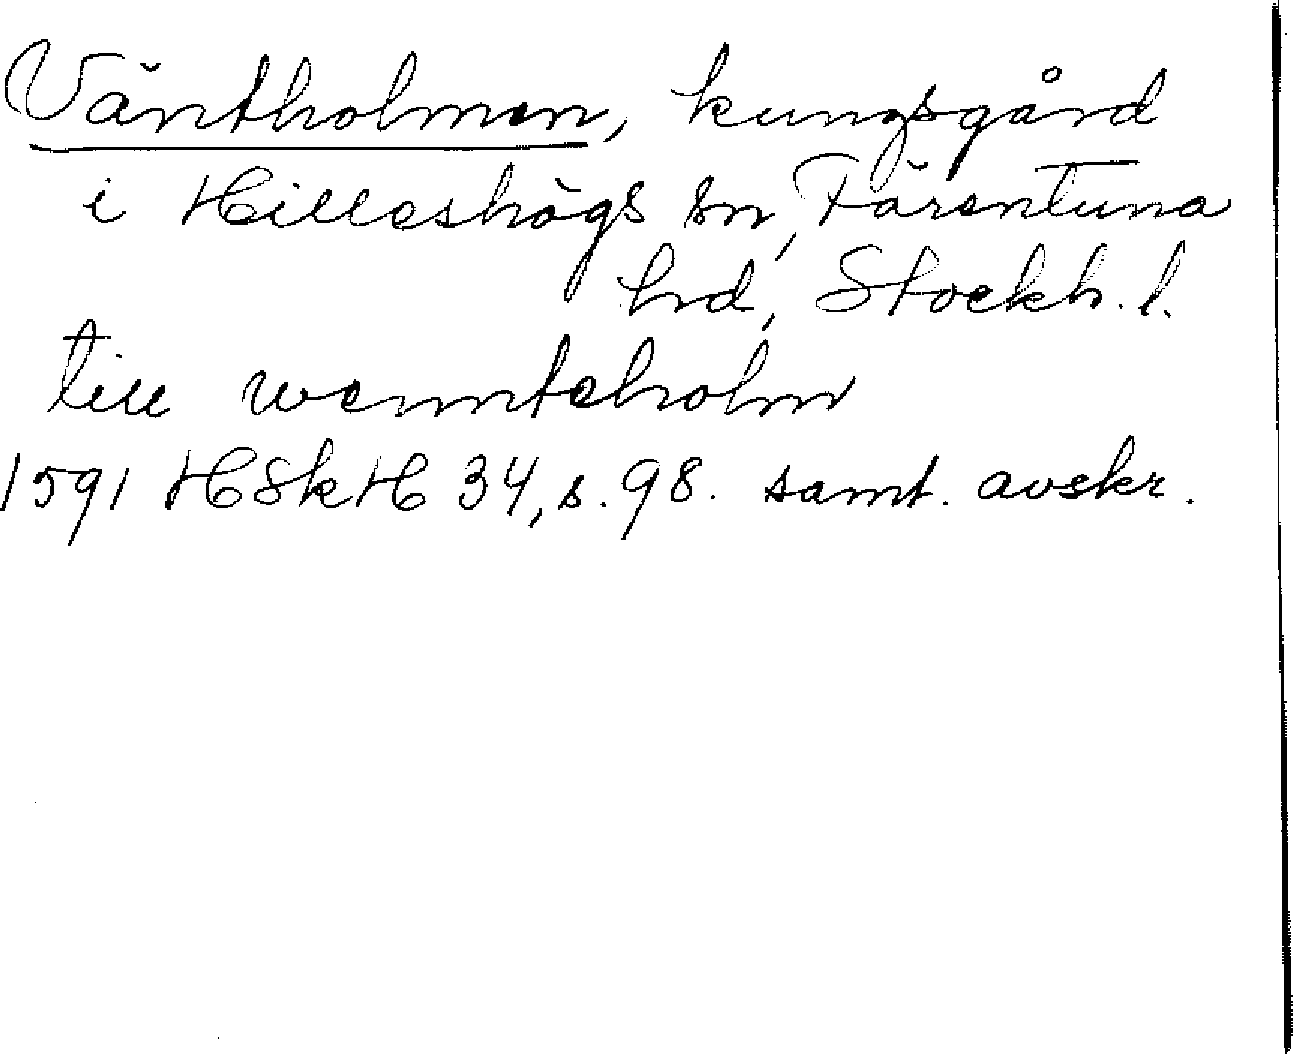 Väntholmen, kungsgård
i Hilleshögs sn, Färentuna
hrd, Stockh. l.
till wennteholm
1591 HSkH 34, s. 98. samt. avskr.